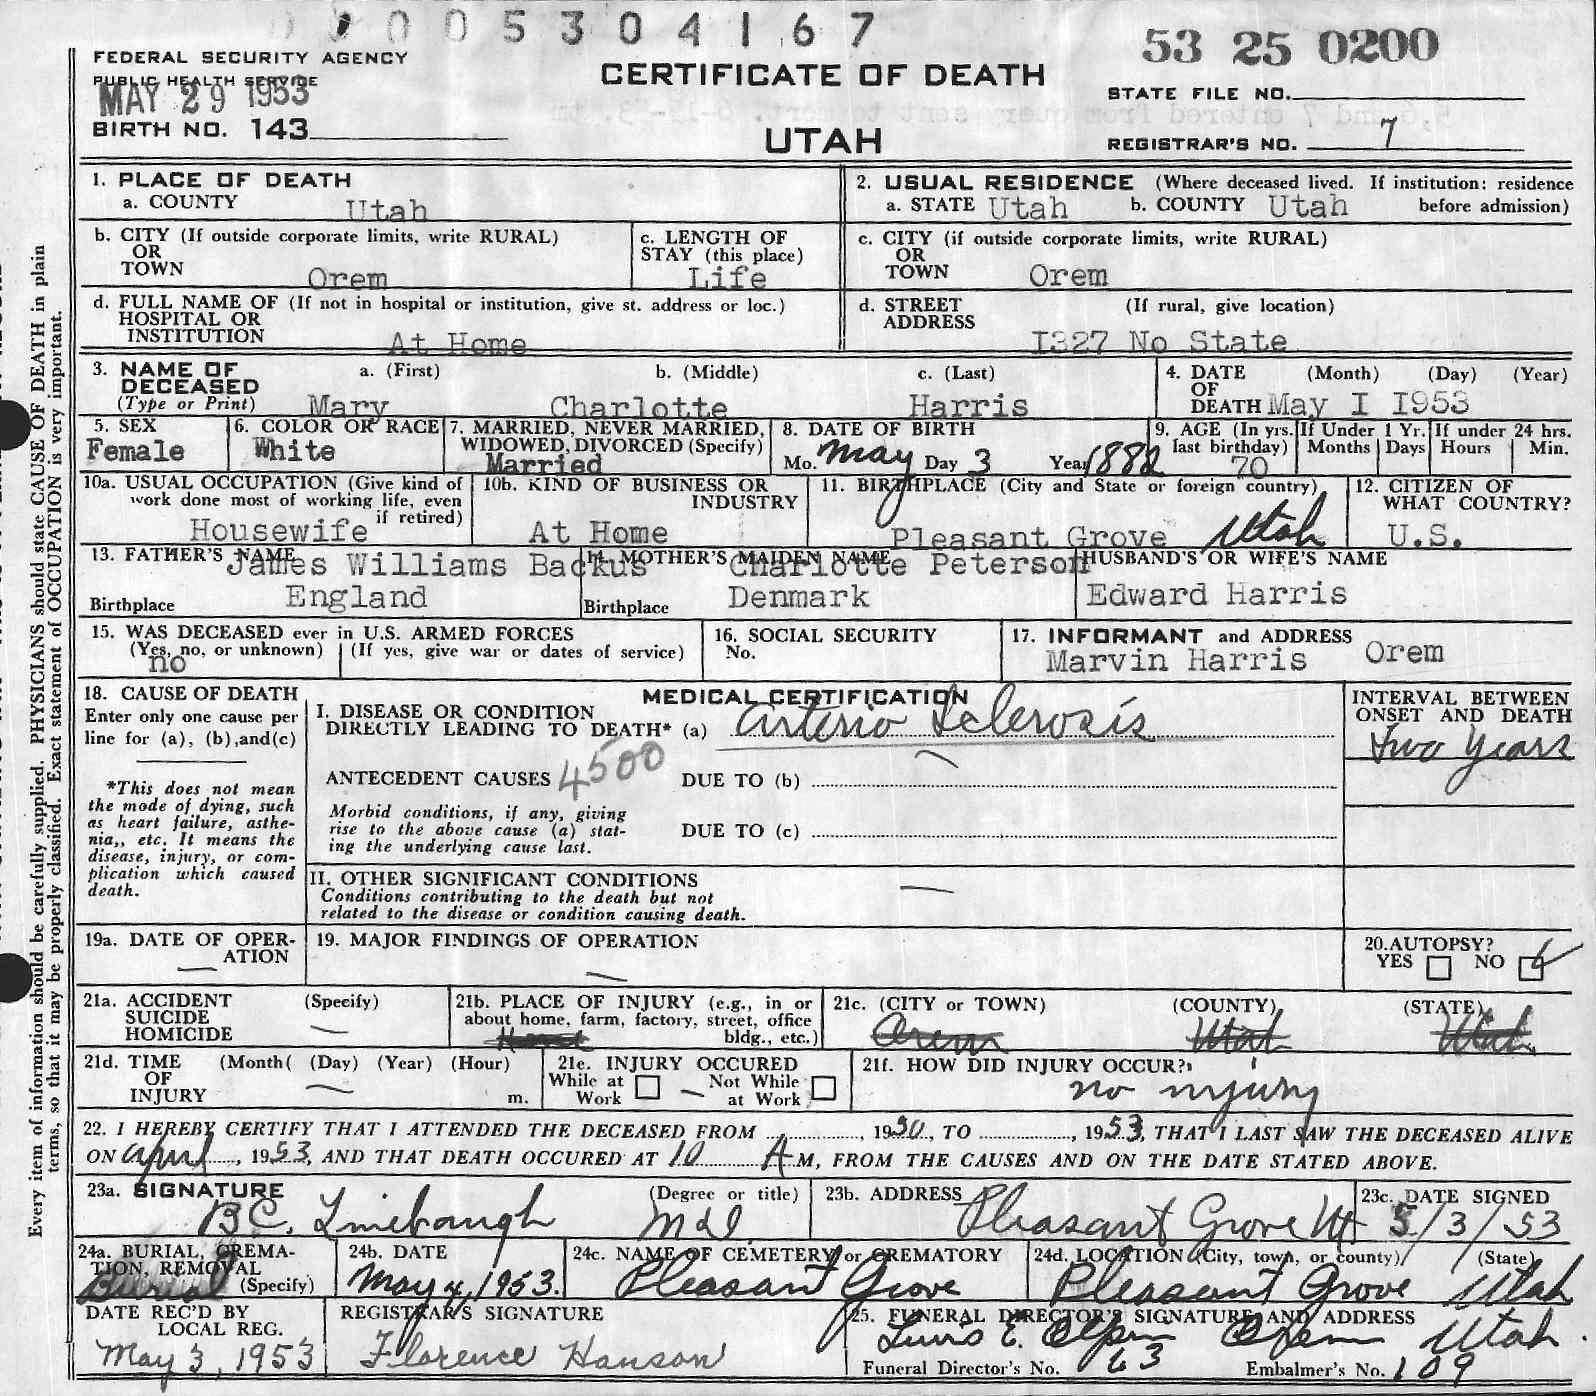 0005304167
53 25 0200
FEDERAL SECURITY AGENCY
PUBLIC HEALTH SERVICE
MAY 29 1953
BIRTH NO. 143
CERTIFICATE OF DEATH
UTAH
STATE FILE NO.
REGISTRAR'S NO. 7
1. PLACE OF DEATH
a. COUNTY Utah
2. USUAL RESIDENCE (Where deceased lived. If institution: residence before admission)
a. STATE Utah b. COUNTY Utah
b. CITY (If outside corporate limits, write RURAL)
OR
TOWN Orem
c. LENGTH OF
STAY (this place)
Life
c. CITY (if outside corporate limits, write RURAL)
OR
TOWN Orem
d. FULL NAME OF (If not in hospital or institution, give st. address or loc.)
HOSPITAL OR
INSTITUTION At Home
d. STREET (If rural, give location)
ADDRESS
I327 No State
3. NAME OF
DECEASED
(Type or Print)
a. (First) b. (Middle) c. (Last)
Mary Charlotte Harris
4. DATE (Month) (Day) (Year)
OF
DEATH May I I953
5. SEX
Female
6. COLOR OR RACE
White
7. MARRIED, NEVER MARRIED,
WIDOWED, DIVORCED (Specify)
Married
8. DATE OF BIRTH
Mo. May Day 3 Year 1882
9. AGE (In yrs.
last birthday)
70
If Under 1 Yr.
Months Days
If under 24 hrs.
Hours Min.
10a. USUAL OCCUPATION (Give kind of
work done most of working life, even
if retired)
Housewife
10b. KIND OF BUSINESS OR
INDUSTRY
At Home
11. BIRTHPLACE (City and State or foreign country)
Pleasant Grove Utah
12. CITIZEN OF
WHAT COUNTRY?
U.S.
13. FATHER'S NAME
James Williams Backus
Birthplace England
14. MOTHER'S MAIDEN NAME
Charlotte Peterson
Birthplace Denmark
HUSBAND'S OR WIFE'S NAME
Edward Harris
15. WAS DECEASED ever in U.S. ARMED FORCES
(Yes, no, or unknown) (If yes, give war or dates of service)
no
16. SOCIAL SECURITY
No.
17. INFORMANT and ADDRESS
Marvin Harris Orem
18. CAUSE OF DEATH
Enter only one cause per
line for (a), (b), and (c)
*This does not mean
the mode of dying, such
as heart failure, asthe-
nia,, etc. It means the
disease, injury, or com-
plication which caused
death.
MEDICAL CERTIFICATION
I. DISEASE OR CONDITION
DIRECTLY LEADING TO DEATH* (a) Arterio Sclerosis
ANTECEDENT CAUSES 4500 DUE TO (b)
Morbid conditions, if any, giving
rise to the above cause (a) stat-
ing the underlying cause last.
DUE TO (c)
INTERVAL BETWEEN
ONSET AND DEATH
two years
II. OTHER SIGNIFICANT CONDITIONS
Conditions contributing to the death but not
related to the disease or condition causing death.
19a. DATE OF OPER-
ATION
19. MAJOR FINDINGS OF OPERATION
20. AUTOPSY?
YES NO
21a. ACCIDENT (Specify)
SUICIDE
HOMICIDE
21b. PLACE OF INJURY (e.g., in or
about home, farm, factory, street, office
bldg., etc.)
Home
21c. (CITY or TOWN) (COUNTY) (STATE)
Orem Utah Utah
21d. TIME (Month( (Day) (Year) (Hour)
OF
INJURY m.
21e. INJURY OCCURED
While at Work Not While at Work
21f. HOW DID INJURY OCCUR?
no injury
22. I HEREBY CERTIFY THAT I ATTENDED THE DECEASED FROM , 1930, TO , 1953, THAT I LAST SAW THE DECEASED ALIVE
ON April , 1953, AND THAT DEATH OCCURED AT 10 A M, FROM THE CAUSES AND ON THE DATE STATED ABOVE.
23a. SIGNATURE (Degree or title)
B C. Linebaugh M d.
23b. ADDRESS
Pleasant Grove Ut
23c. DATE SIGNED
5/3/53
24a. BURIAL, CREMA-
TION, REMOVAL
(Specify)
Burial
24b. DATE
May 4, 1953.
24c. NAME OF CEMETERY or CREMATORY
Pleasant Grove
24d. LOCATION (City, town, or county) (State)
Pleasant Grove Utah
DATE REC'D BY
LOCAL REG.
May 3, 1953
REGISTRAR'S SIGNATURE
Florence Hanson
25. FUNERAL DIRECTOR'S SIGNATURE AND ADDRESS
E. Orem Utah.
Funeral Director's No. 63 Embalmer's No. 109
Every item of information should be carefully supplied. PHYSICIANS should state CAUSE OF DEATH in plain
terms, so that it may be properly classified. Exact statement of OCCUPATION is very important.